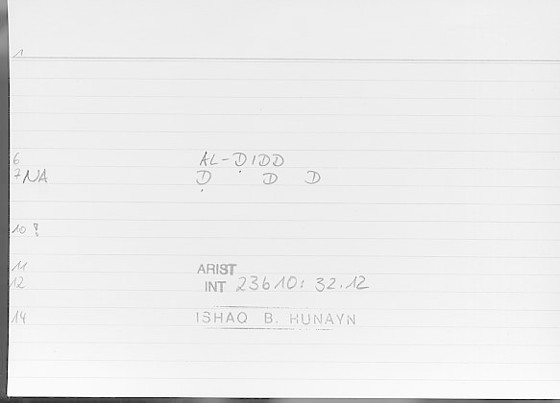 1
6 AL-DIDD
7 NA Ḍ D D
10 !
11 ARIST
12 INT 23b10: 32.12
14 ISHAQ B. HUNAYN